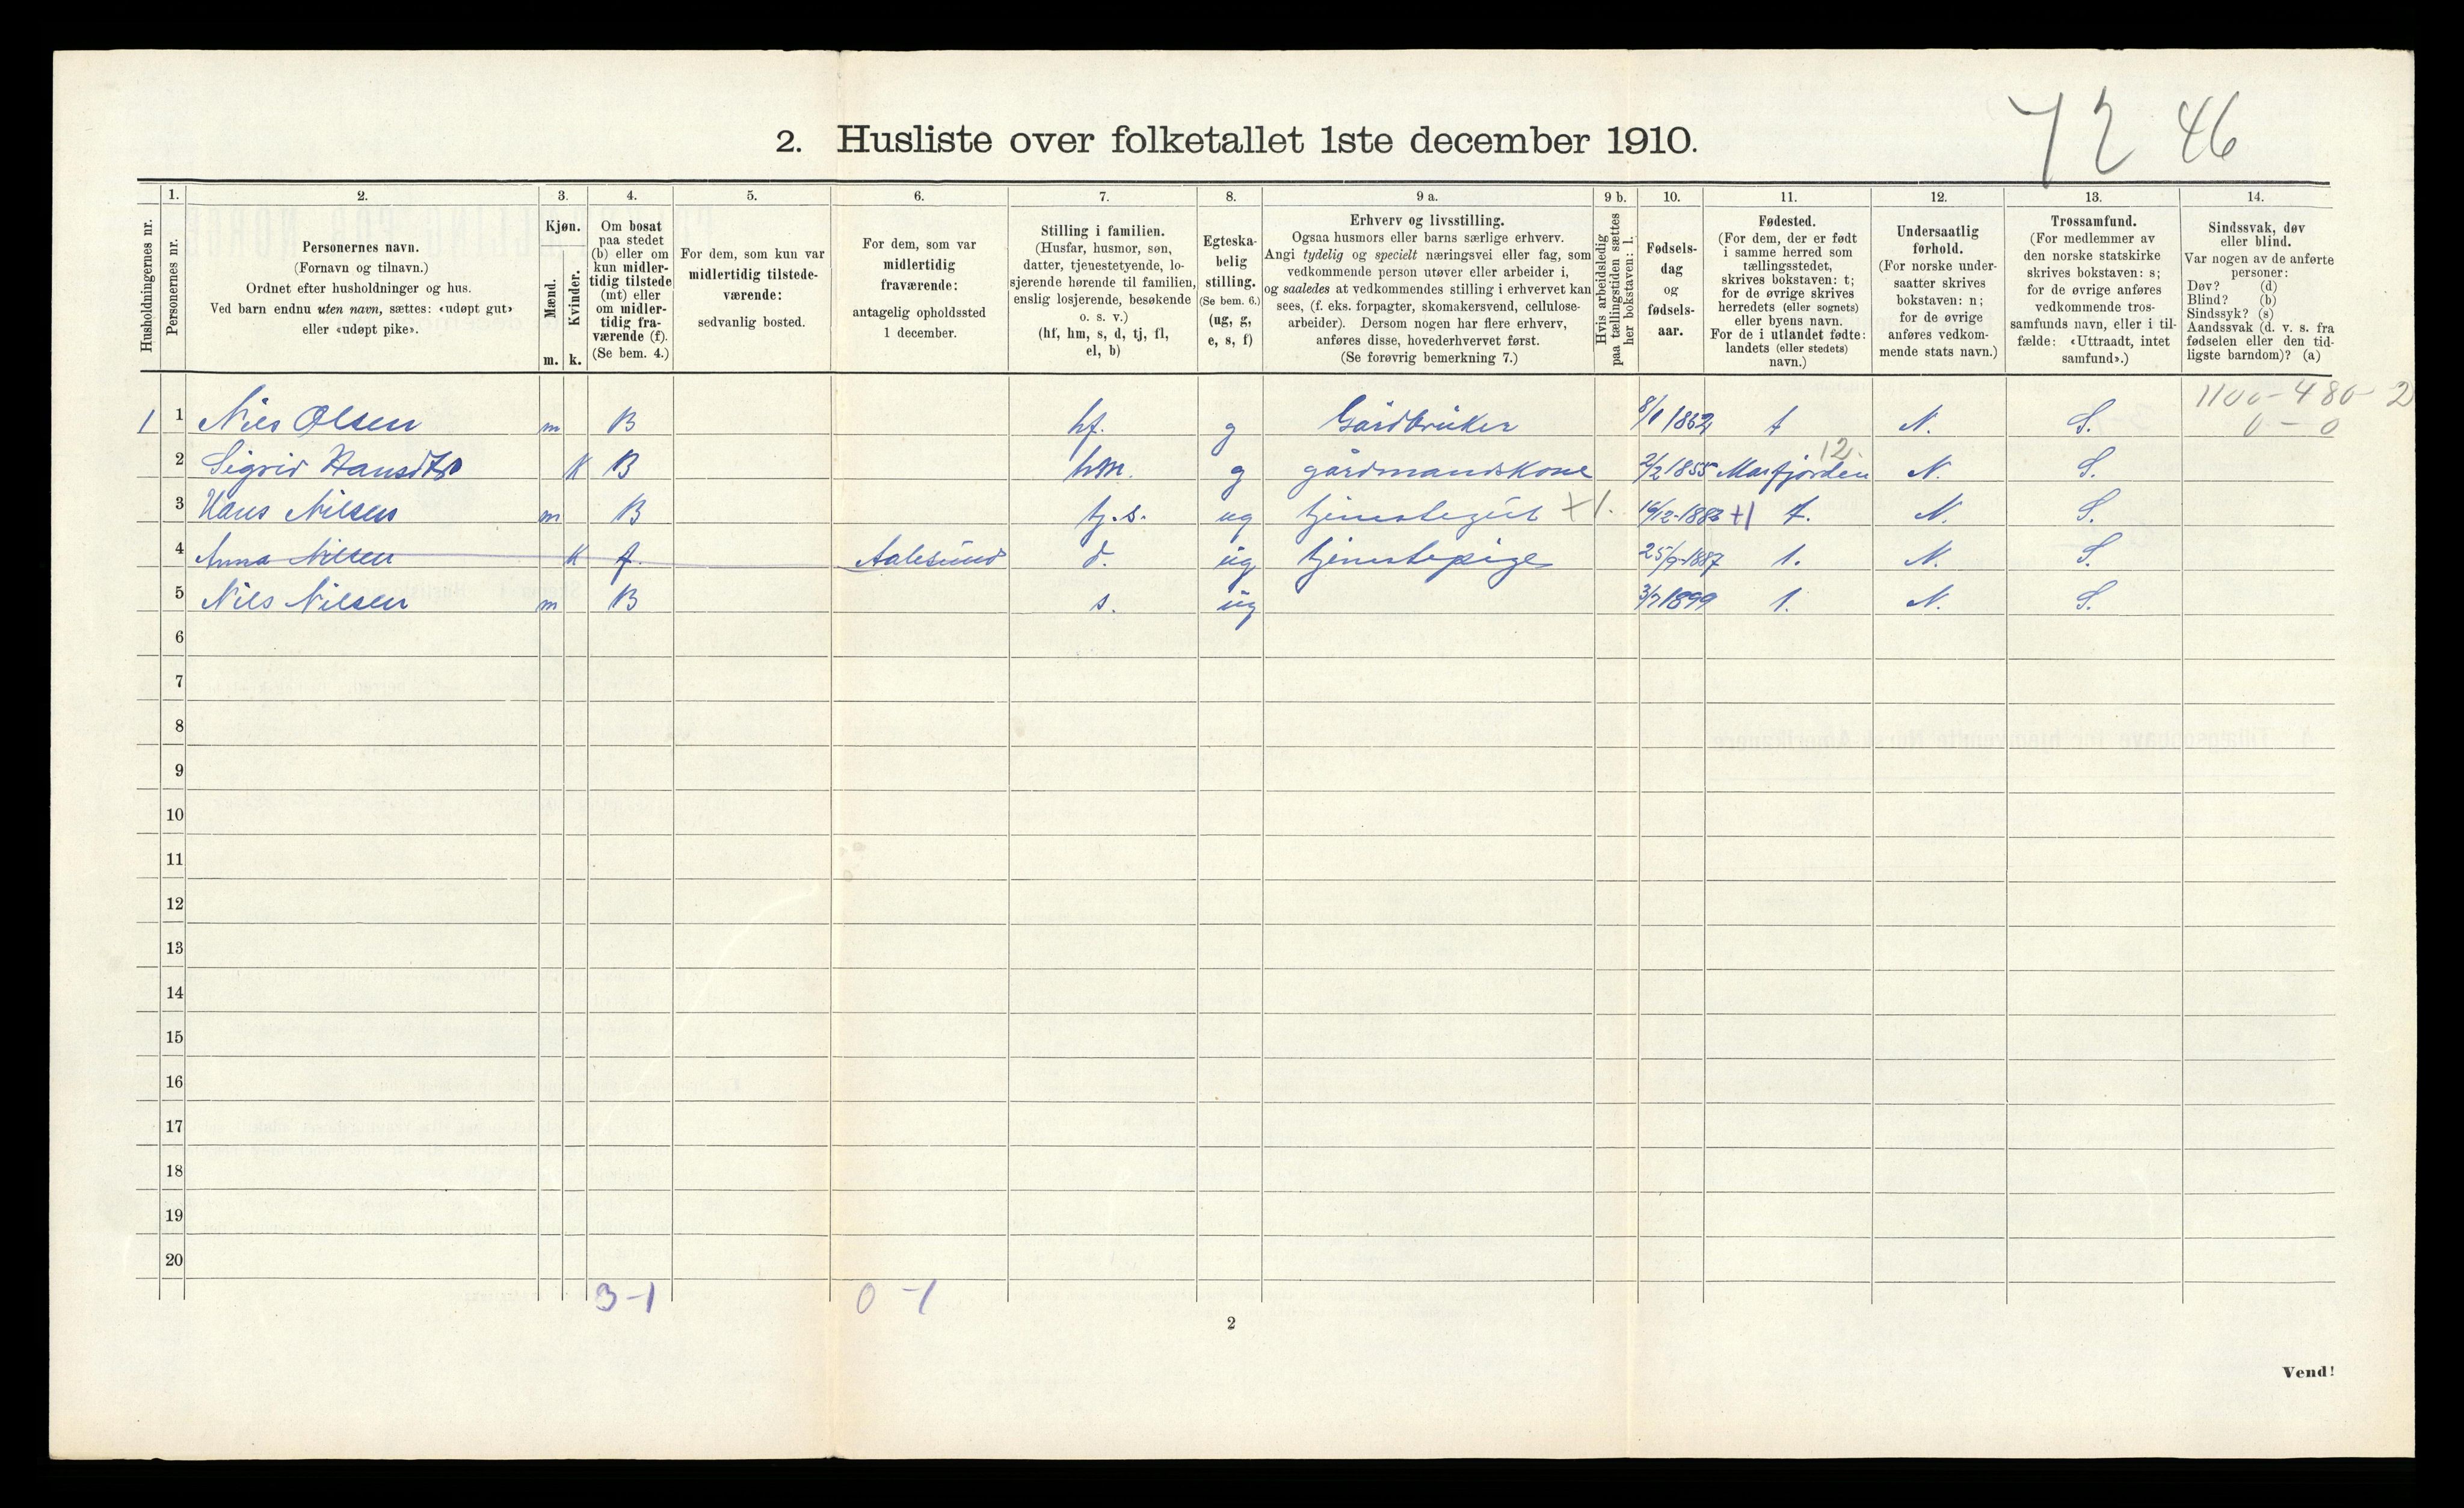 72 46
2. Husliste over folketallet 1ste december 1910.
Husholdningernes nr.
1.
Personernes nr.
2.
Personernes navn.
(Fornavn og tilnavn.)
Ordnet efter husholdninger og hus.
Ved barn endnu uten navn, sættes: «udøpt gut»
eller «udøpt pike».
3.
Kjøn.
Mænd.
m.
Kvinder.
k.
4.
Om bosat
paa stedet
(b) eller om
kun midler-
tidig tilstede
(mt) eller
om midler-
tidig fra-
værende (f).
(Se bem. 4.)
5.
For dem, som kun var
midlertidig tilstede-
værende:
sedvanlig bosted.
6.
For dem, som var
midlertidig
fraværende:
antagelig opholdssted
1 december.
7.
Stilling i familien.
(Husfar, husmor, søn,
datter, tjenestetyende, lo-
sjerende hørende til familien,
enslig losjerende, besøkende
o. s. v.)
(hf, hm, s, d, tj, fl,
el, b)
8.
Egteska-
belig
stilling.
(Se bem. 6.)
(ug, g,
e, s, f)
9 a.
Erhverv og livsstilling.
Ogsaa husmors eller barns særlige erhverv.
Angi tydelig og specielt næringsvei eller fag, som
vedkommende person utøver eller arbeider i,
og saaledes at vedkommendes stilling i erhvervet kan
sees, (f. eks. forpagter, skomakersvend, cellulose-
arbeider). Dersom nogen har flere erhverv,
anføres disse, hovederhvervet først.
(Se forøvrig bemerkning 7.)
9 b.
Hvis arbeidsledig
paa tællingstiden sættes
her bokstaven: l.
10.
Fødsels-
dag
og
fødsels-
aar.
11.
Fødested.
(For dem, der er født
i samme herred som
tællingsstedet,
skrives bokstaven: t;
for de øvrige skrives
herredets (eller sognets)
eller byens navn.
For de i utlandet fødte:
landets (eller stedets)
navn.)
12.
Undersaatlig
forhold.
(For norske under-
saatter skrives
bokstaven: n;
for de øvrige
anføres vedkom-
mende stats navn.)
13.
Trossamfund.
(For medlemmer av
den norske statskirke
skrives bokstaven: s;
for de øvrige anføres
vedkommende tros-
samfunds navn, eller i til-
fælde: «Uttraadt, intet
samfund».)
14.
Sindssvak, døv
eller blind.
Var nogen av de anførte
personer:
Døv? (d)
Blind? (b)
Sindssyk? (s)
Aandssvak (d. v. s. fra
fødselen eller den tid-
ligste barndom)? (a)
1100-480-2
0-0
1 1 Nils Olsen m B hf. g Gårdbruker 1862 t N. S.
12.
2 Sigrid Hansdtr K B hm. g gårdmandskone 2/2 1855 Masfjorden N. S.
3 Hans Nilsen m B tj. s. ug tjenstegut +1. 1883 +1 t. N. S.
4 Anna Nilsen K f. Aalesund d. ug tjenstepige 25/9-1887 1. N. S.
5 Nils Nilsen m B s. ug 3/7 1899 1. N. S.
6
7
8
9
10
11
12
13
14
15
16
17
18
19
20
3-1 0-1
2
Vend!